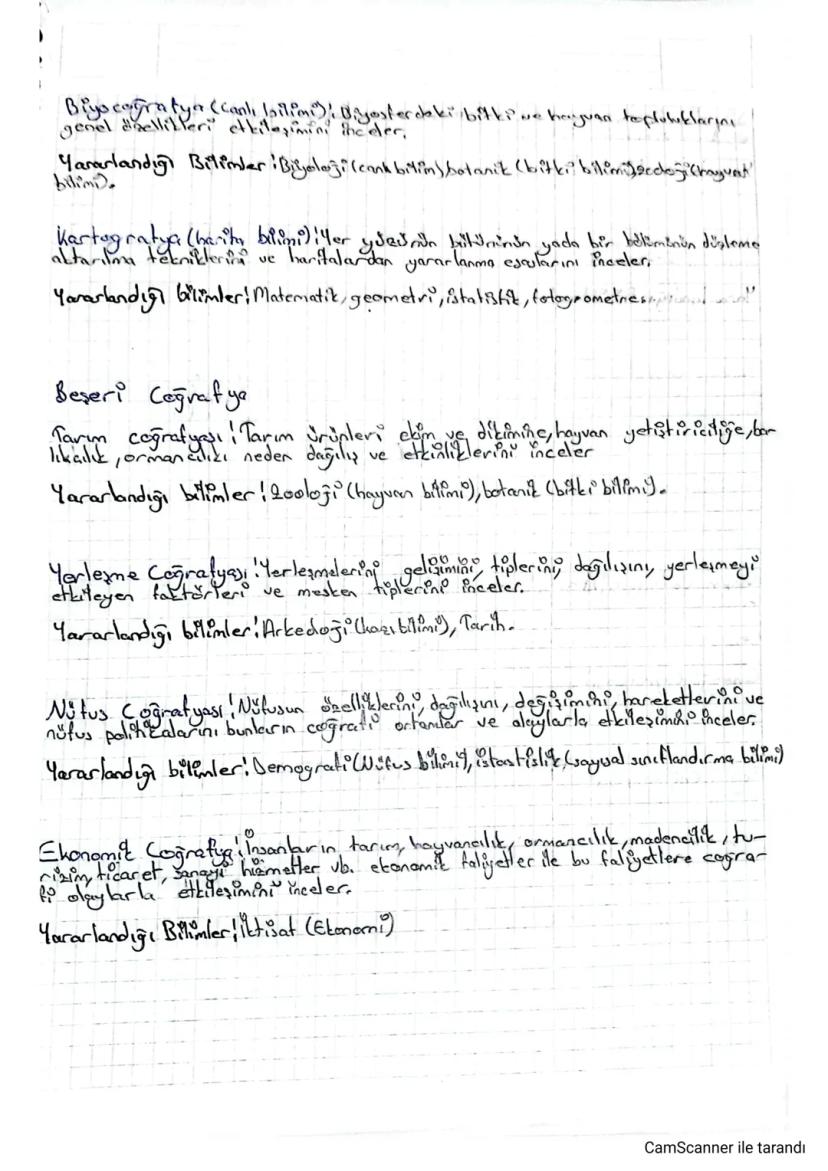 Biyocoğrafya (canlı bilimi): Biyosferdeki bitki ve hayvan topluluklarını
genel özellikleri etkileşimini inceler.
Yararlandığı Bilimler: Biyoloji (canlı bilim), botanik (bitki bilimi), zooloji (hayvan
bilimi).
Kartografya (harita bilimi): Yer yüzünün bütününün yada bir bölümünün düzleme
aktarılma tekniklerini ve haritalardan yararlanma esaslarını inceler.
Yararlandığı bilimler: Matematik, geometri, istatistik,
Beşeri Coğrafya
Tarım coğrafyası: Tarım ürünleri ekim ve dikimine, hayvan yetiştiriciliğe, bar
lıkcılık, ormancılıkı neden dağılış ve etkinliklerini inceler
Yararlandığı bilimler: Zooloji (hayvan bilimi), botanik (bitki bilimi).
Yerleşme Coğrafyası: Yerleşmelerini gelişimini, tiplerini, dağılışını, yerleşmeyi
etkileyen faktörleri ve mesken tiplerini inceler.
Yararlandığı bilimler: Arkeoloji (kazı bilimi), Tarih.
Nüfus Coğrafyası: Nüfusun özelliklerini, dağılışını, değişimini, hareketlerini ve
nüfus politikalarını bunların coğrafi ortamlar ve olaylarla etkileşimini inceler.
Yararlandığı bilimler: Demografi (Nüfus bilimi), istastislik (sayısal sınıflandırma bilimi)
Ekonomik Coğrafya: İnsanların tarım, hayvancılık, ormancılık, madencilik, tu-
rizim, ticaret, sanayi hizmetler vb. ekonomik faliyetler ile bu faliyetlere coğra-
fi olaylarla etkileşimini inceler.
Yararlandığı Bilimler: İktisat (Ekonomi)
CamScanner ile tarandı